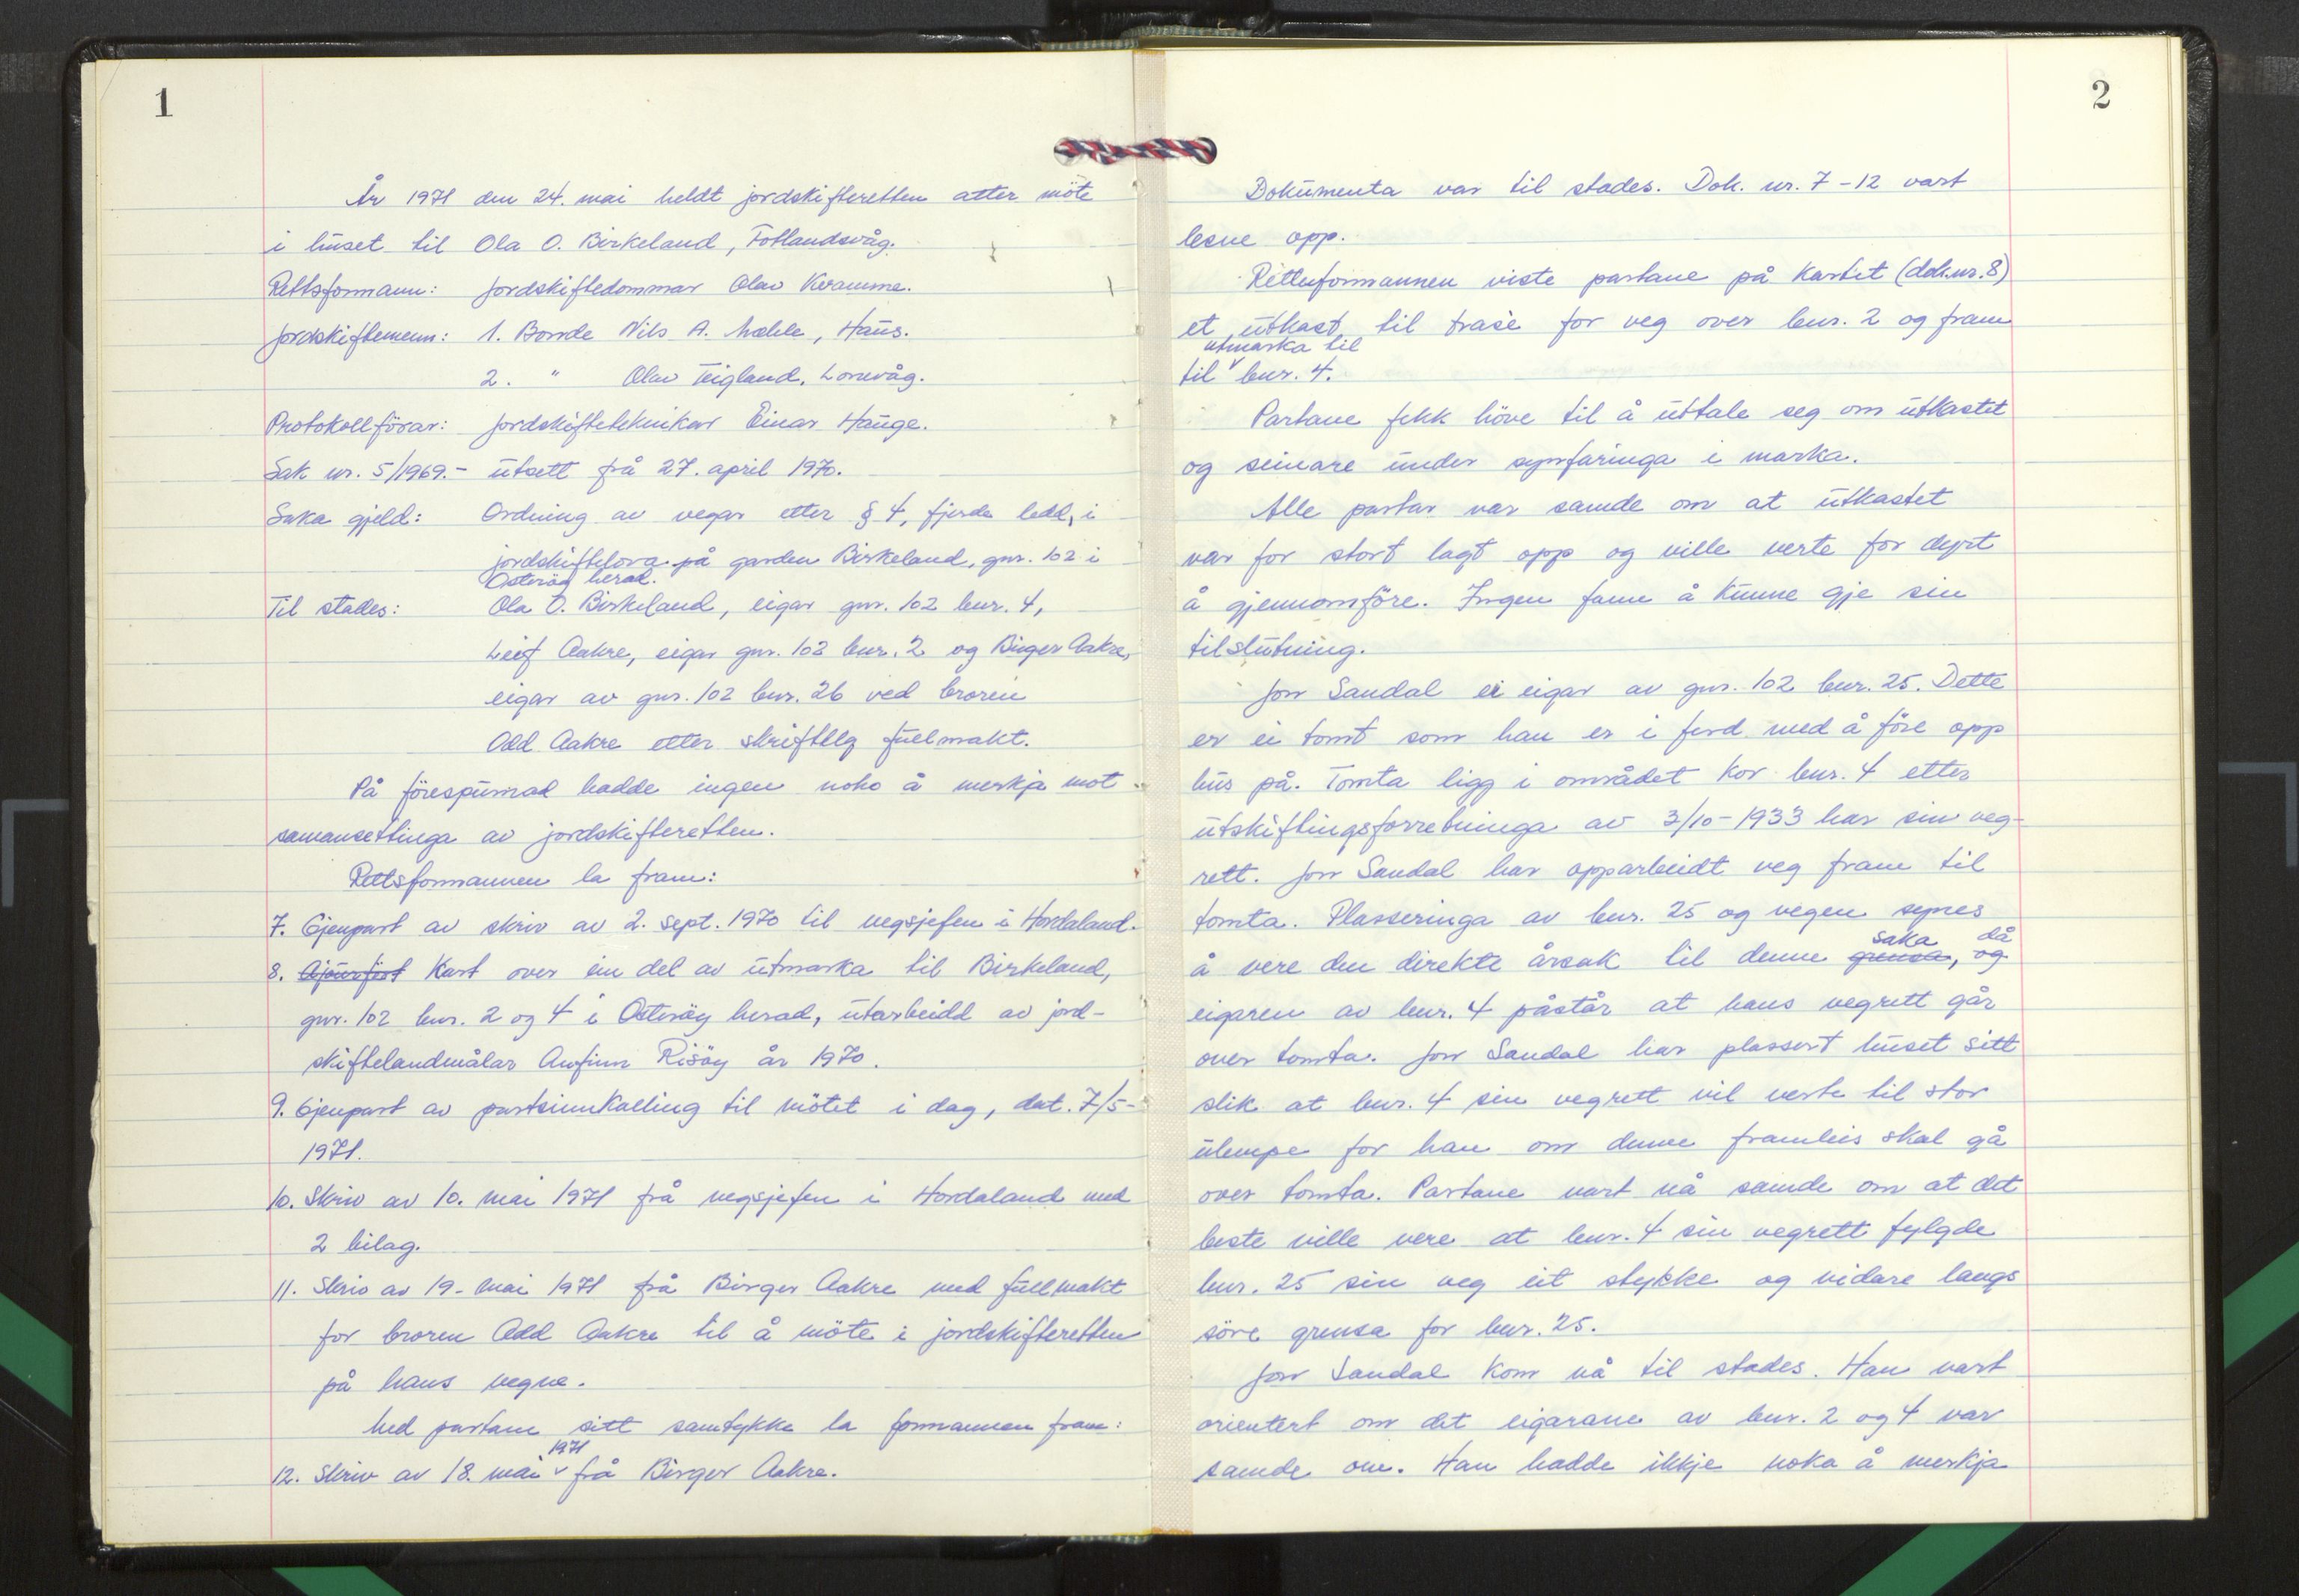 1
År 1971 den 24. mai heldt jordskifteretten atter möte
i huset til Ola O. Birkeland, Fotlandsvåg.
Rettsformann: Jordskiftedommar Olav Kvamme.
Jordskiftemenn: 1. Bonde Nils A. Mæhle, Haus.
2. " Olav Teigland, Lonevåg.
Protokollförar: Jordskiftetekniker Einar Hauge.
Sak nr. 5/1969.- utsett frå 27. april 1970.
Saka gjeld: Ordning av vegar etter § 4, fjerde ledd, i
jordskiftelova på garden Birkeland, gnr. 102 i
Osteröy herad.
Til stades: Ola O. Birkeland, eigar gnr. 102 bnr. 4,
Leif Aakre, eigar gnr. 102 bnr. 2 og Birger Aakre,
eigar av gnr. 102 bnr. 26 ved broren
Odd Aakre etter skriftleg fullmakt.
På förespurnad hadde ingen noko å merkja mot
samansettinga av jordskifteretten.
Rettsformannen la fram:
7. Gjenpart av skriv av 2. sept. 1970 til vegsjefen i Hordaland.
8. Ajourfört Kart over ein del av utmarka til Birkeland,
gnr. 102 bnr. 2 og 4 i Osteröy herad, utarbeidd av jord-
skiftelandmålar Anfinn Risöy år 1970.
9. Gjenpart av partsinnkalling til mötet i dag, dat. 7/5-
1971.
10. Skriv av 10. mai 1971 frå vegsjefen i Hordaland med
2 bilag.
11. Skriv av 19. mai 1971 frå Birger Aakre med fullmakt
for broren Odd Aakre til å möte i jordskifteretten
på hans vegne.
Med partane sitt samtykke la formannen fram:
12. Skriv av 18. mai 1971 frå Birger Aakre.
2
Dokumenta var til stades. Dok. nr. 7-12 vart
lesne opp.
Rettsformannen viste partane på kartet (dok.nr. 8)
et utkast til trasè for veg over bnr. 2 og fram
til utmarka til bnr. 4.
Partane fekk höve til å uttale seg om utkastet
og seinare under synfaringa i marka.
Alle partar var samde om at utkastet
var for stort lagt opp og ville verte for dyrt
å gjennomföre. Ingen fann å kunne gje sin
tilslutning.
Jon Sandal er eigar av gnr. 102 bnr. 25. Dette
er ei tomt som han er i ferd med å före opp
hus på. Tomta ligg i området kor bnr. 4 etter
utskiftingsforretninga av 3/10-1933 har sin veg-
rett. Jon Sandal har opparbeidt veg fram til
tomta. Plasseringa av bnr. 25 og vegen synes
å vere den direkte årsak til denne grensa saka, og då
eigaren av bnr. 4 påstår at hans vegrett går
over tomta. Jon Sandal har plassert huset sitt
slik at bnr. 4 sin vegrett vil verte til stor
ulempe for han om denne framleis skal gå
over tomta. Partane vart nå samde om at det
beste ville vere at bnr. 4 sin vegrett fylgde
bnr. 25 sin veg eit stykke og vidare langs
söre grensa for bnr. 25.
Jon Sandal kom nå til stades. Han vart
orientert om det eigarane av bnr. 2 og 4 var
samde om. Han hadde ikkje noka å merkja